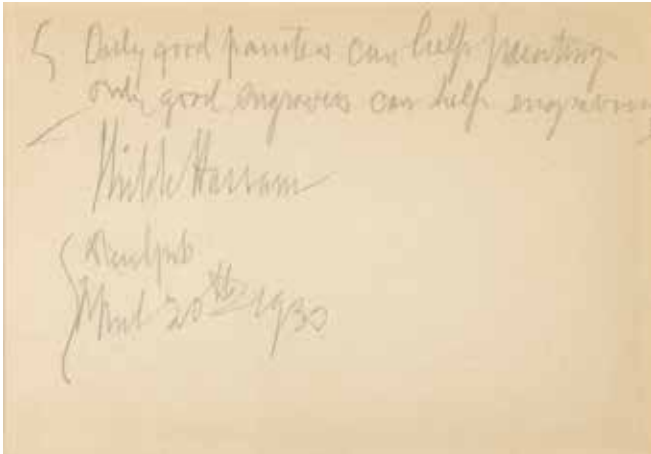 Only good painters can help painting
only good engravers can help engraving
Childe Hassam
April 20th 1930